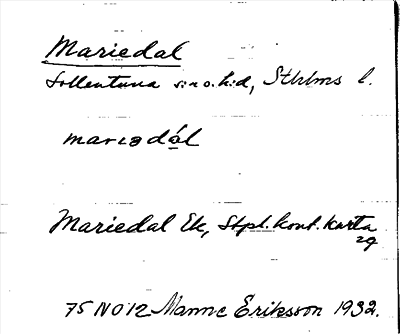 Mariedal
Sollentuna sn o. hd, Sthlms l.
marıədál
Mariedal Ek,
Karta
29
75 NO 12 Manne Eriksson 1932.